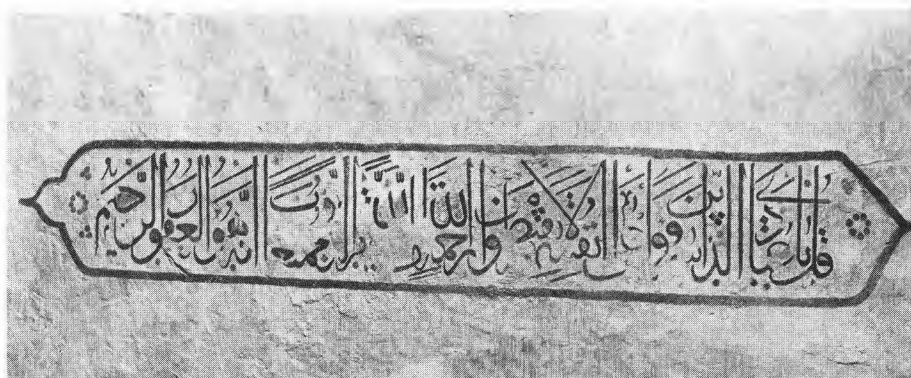 قل يا عبادى الذين اسرفوا على انفسهم لا تقنطوا من رحمة الله ان الله يغفر الذنوب جميعا انه هو الغفور الرحيم